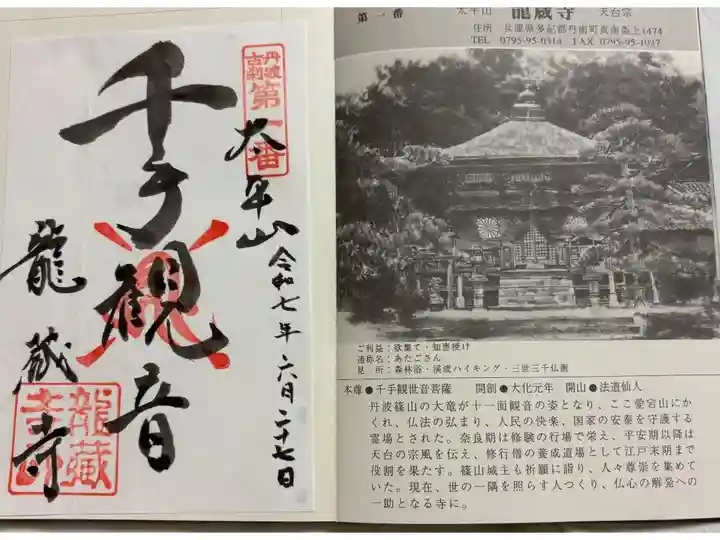 丹波
古刹
第一番
太平山
令和七年六月二十七日
千手観音
龍蔵寺
龍蔵
寺印
第一番 太平山 龍蔵寺 天台宗
住所 兵庫県多紀郡丹南町真南条上1474
TEL 0795-95-0314 FAX 0795-95-1017
ご利益：欲棄て・知恵授け
通称名：あたごさん
見 所：森林浴・渓流ハイキング・三世三千仏画
本尊●千手観世音菩薩 開創●大化元年 開山●法道仙人
丹波篠山の大竜が十一面観音の姿となり、ここ愛宕山にか
くれ、仏法の弘まり、人民の快楽、国家の安泰を守護する
霊場とされた。奈良期は修験の行場で栄え、平安期以降は
天台の宗風を伝え、修行僧の養成道場として江戸末期まで
役割を果たす。篠山城主も祈願に詣り、人々尊崇を集めて
いた。現在、世の一隅を照らす人つくり、仏心の解発への
一助となる寺に。